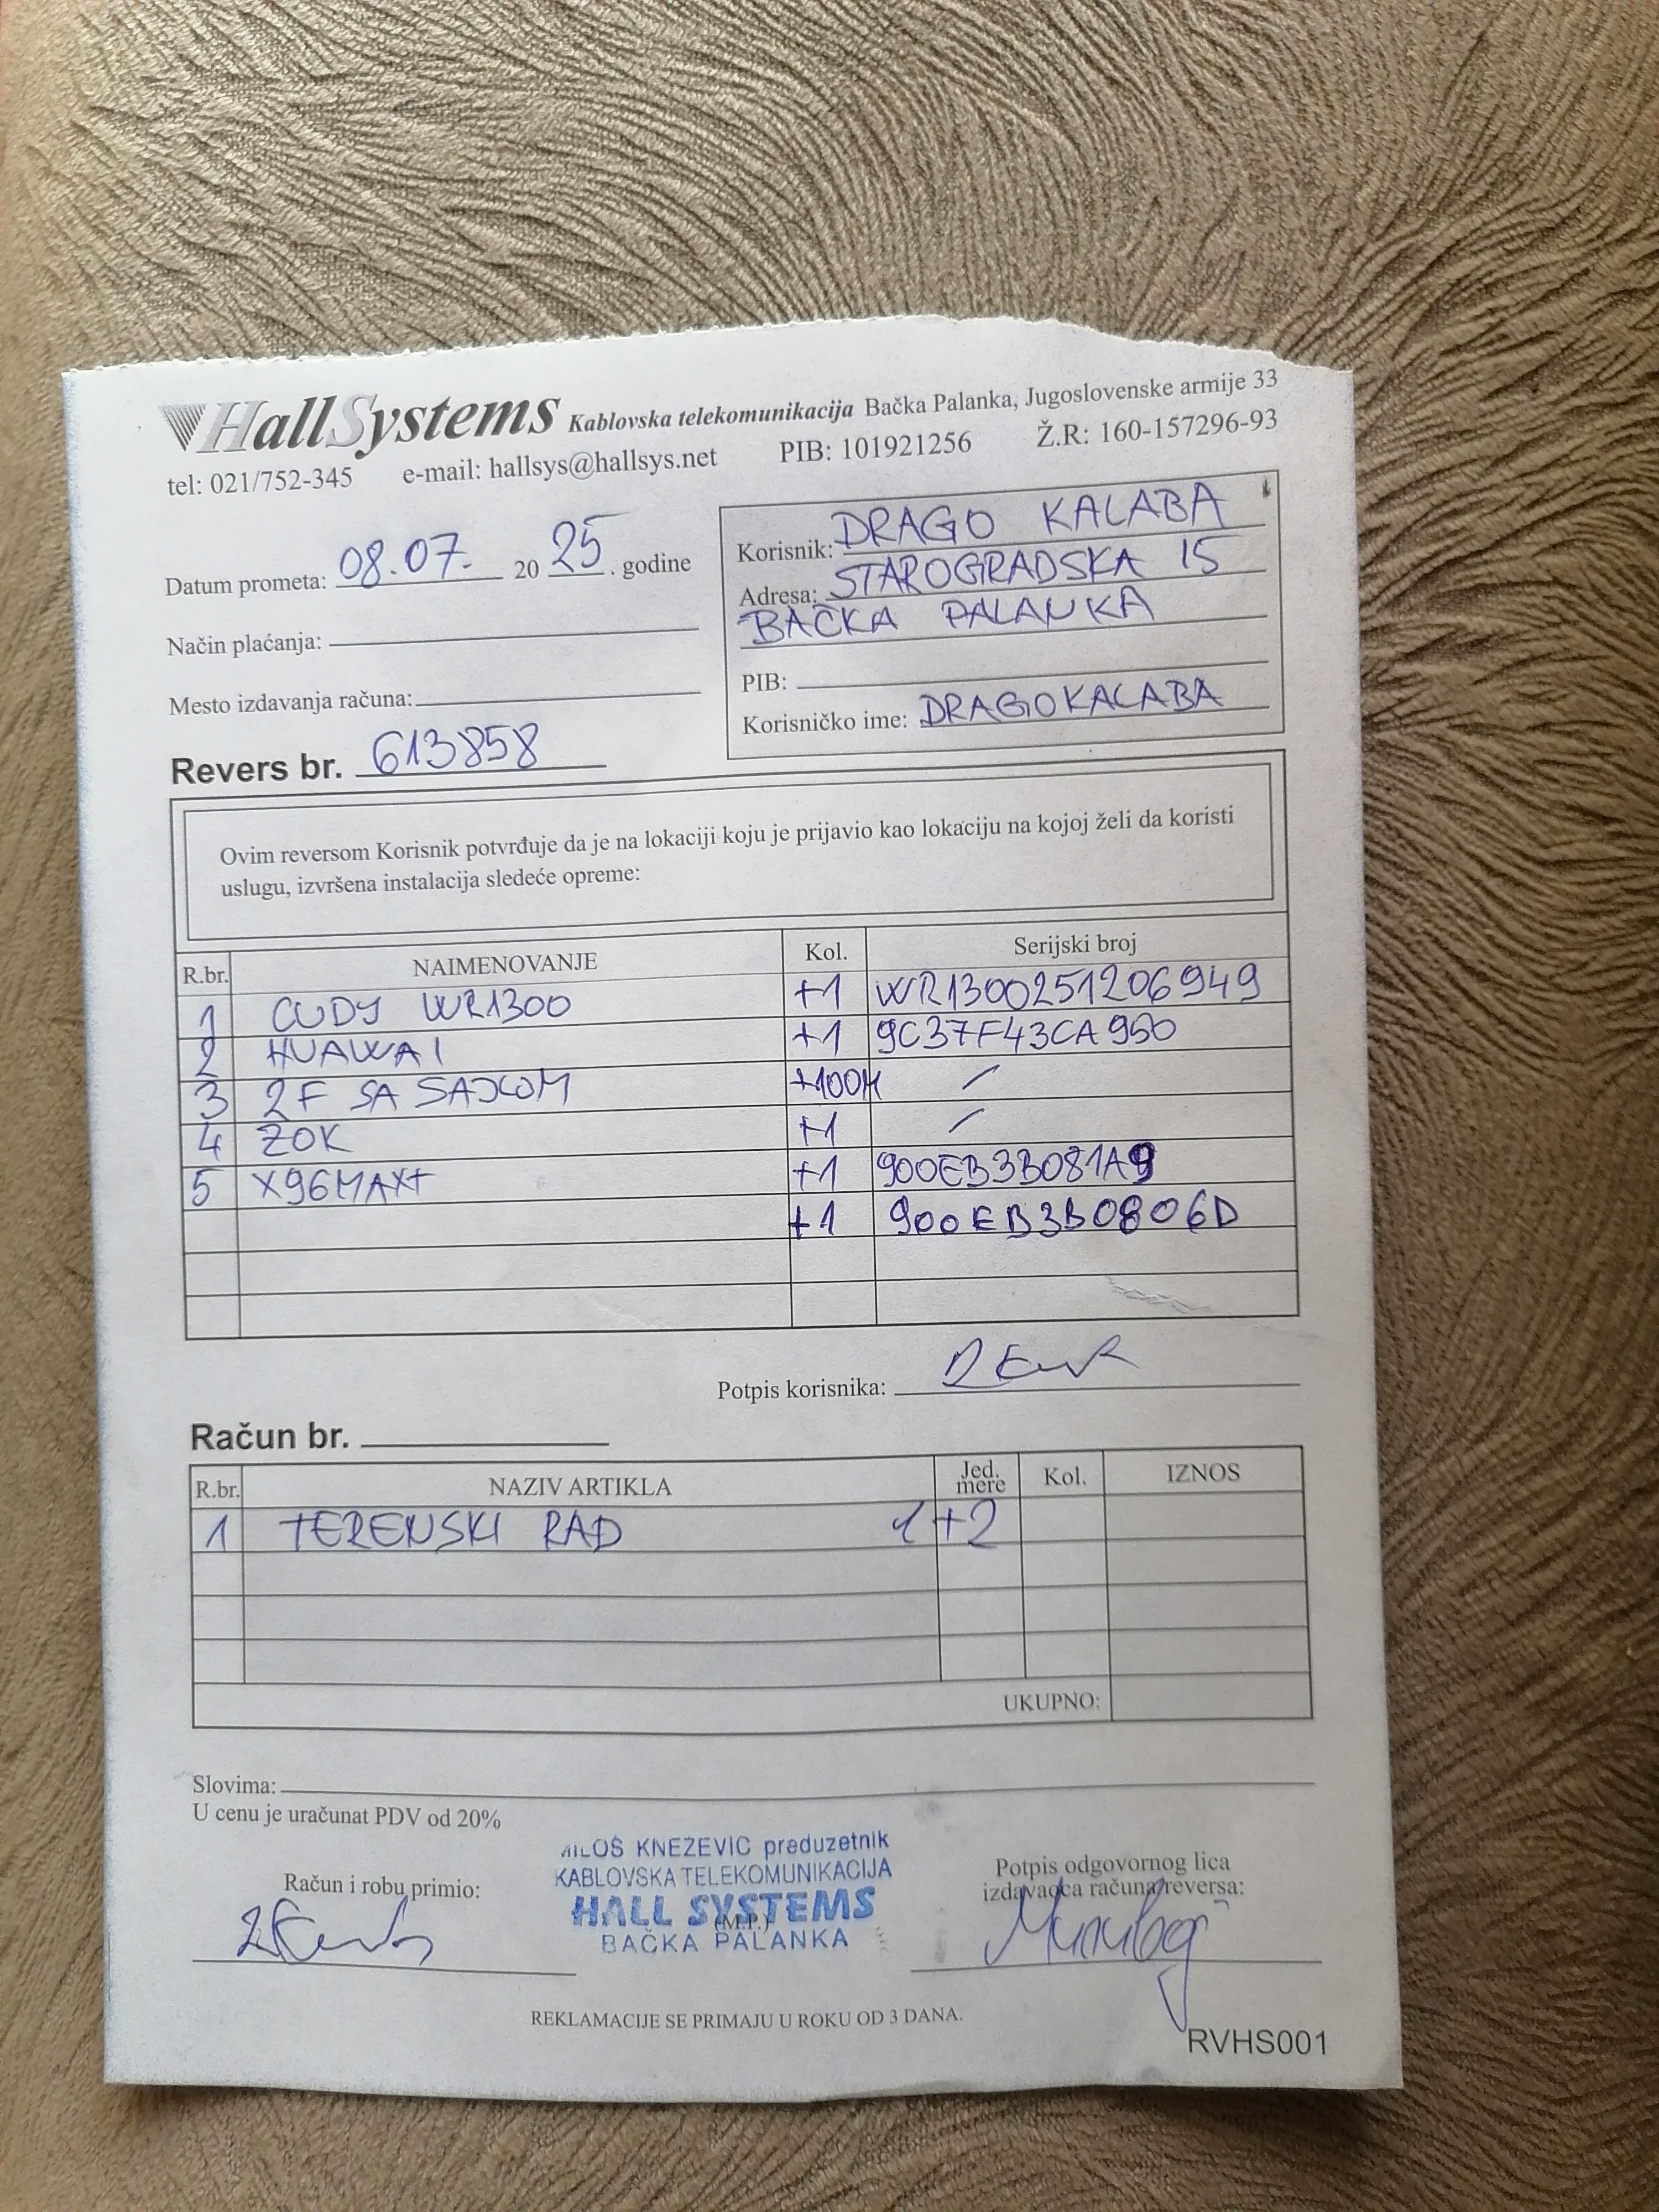 HallSystems Kablovska telekomunikacija Bačka Palanka, Jugoslovenske armije 33
tel: 021/752-345 e-mail: hallsys@hallsys.net PIB: 101921256 Ž.R: 160-157296-93
Datum prometa: 08.07. 2025. godine
Način plaćanja:
Mesto izdavanja računa:
Revers br. 613858
Korisnik: DRAGO KALABA
Adresa: STAROGRADSKA 15
BAČKA PALANKA
PIB:
Korisničko ime: DRAGOKALABA
Ovim reversom Korisnik potvrđuje da je na lokaciji koju je prijavio kao lokaciju na kojoj želi da koristi
uslugu, izvršena instalacija sledeće opreme:
R.br. NAIMENOVANJE Kol. Serijski broj
1 CUDY WR1300 +1 WR1300251206949
2 HUAWAI +1 9C37F43CA950
3 2F SA SAJLOM +100M /
4 ZOK +1 /
5 X96MAX+ +1 900EB3B081A9
+1 900EB3B0806D
Potpis korisnika:
Račun br.
R.br. NAZIV ARTIKLA Jed. mere Kol. IZNOS
1 TERENSKI RAD 1+2
UKUPNO:
Slovima:
U cenu je uračunat PDV od 20%
MILOŠ KNEŽEVIĆ preduzetnik
KABLOVSKA TELEKOMUNIKACIJA
HALL SYSTEMS
(M.P.)
BAČKA PALANKA
Račun i robu primio:
Potpis odgovornog lica
izdavaoca računa/reversa:
REKLAMACIJE SE PRIMAJU U ROKU OD 3 DANA.
RVHS001